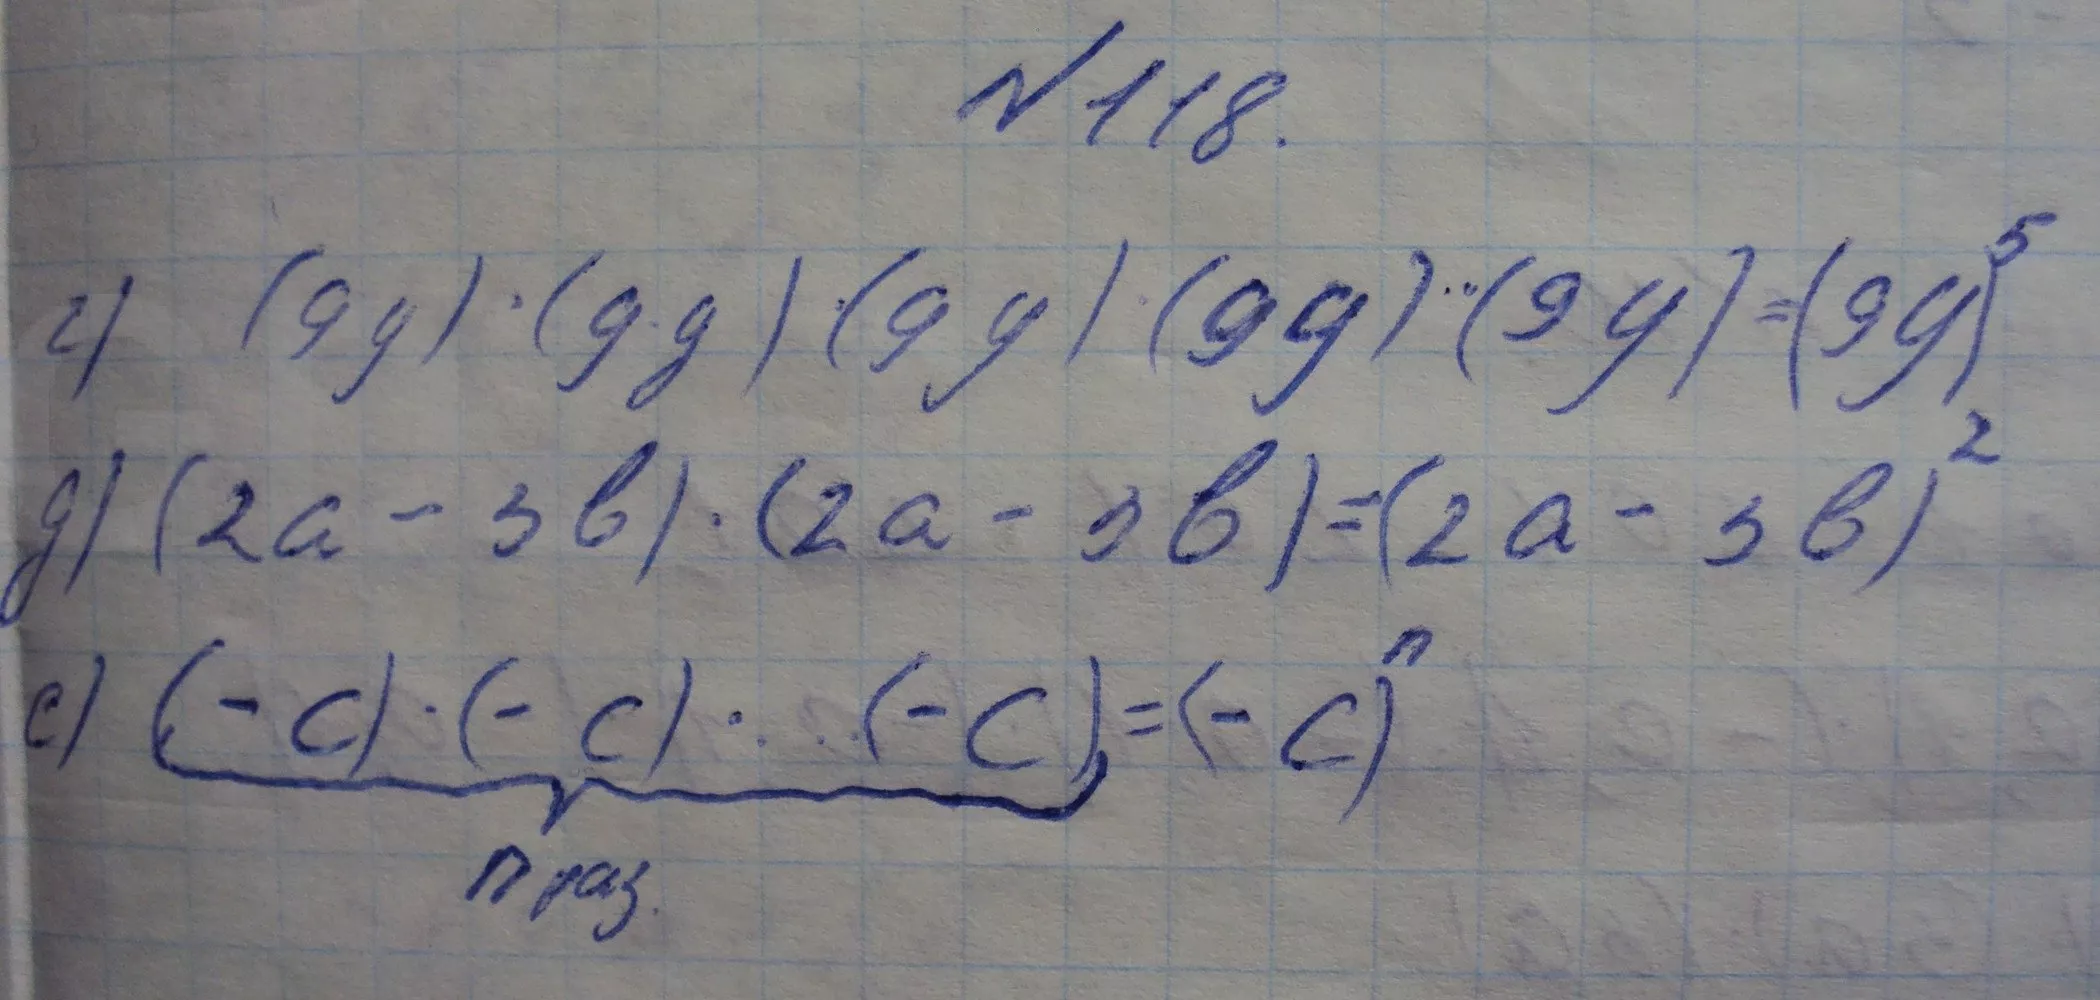 №118.
г) (9y)·(9y)·(9y)·(9y)·(9y)=(9y)⁵
д) (2a-3b)·(2a-3b)=(2a-3b)²
е) (-c)·(-c)·...(-c)=(-c)ⁿ
n раз.